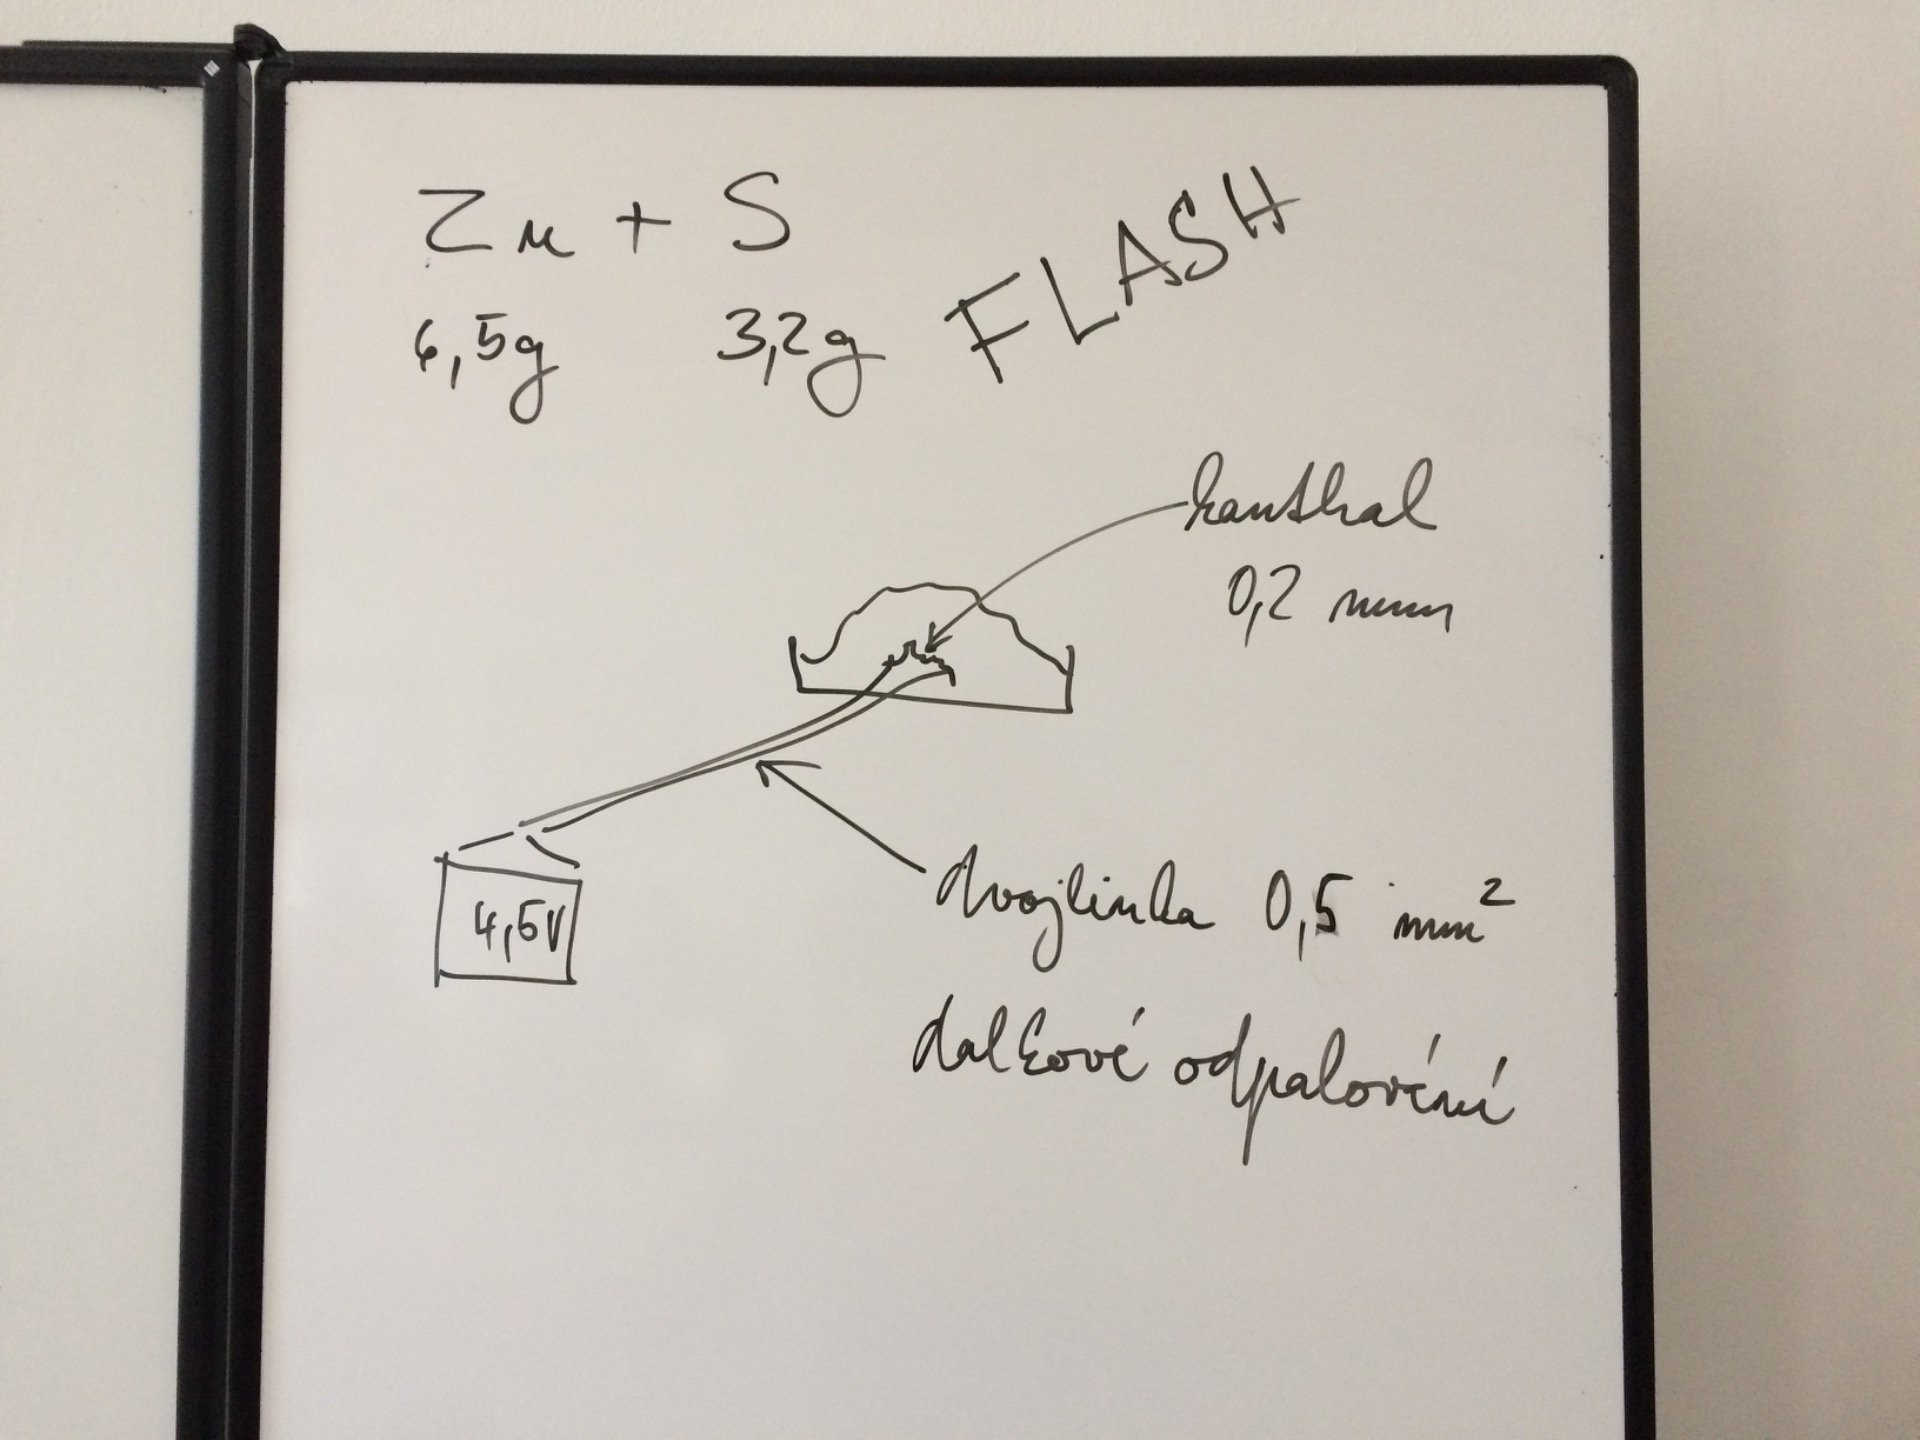 Zn + S
6,5g 3,2g
FLASH
kanthal
0,2 mm
4,5V
dvojlinka 0,5 mm²
dálkové odpalování